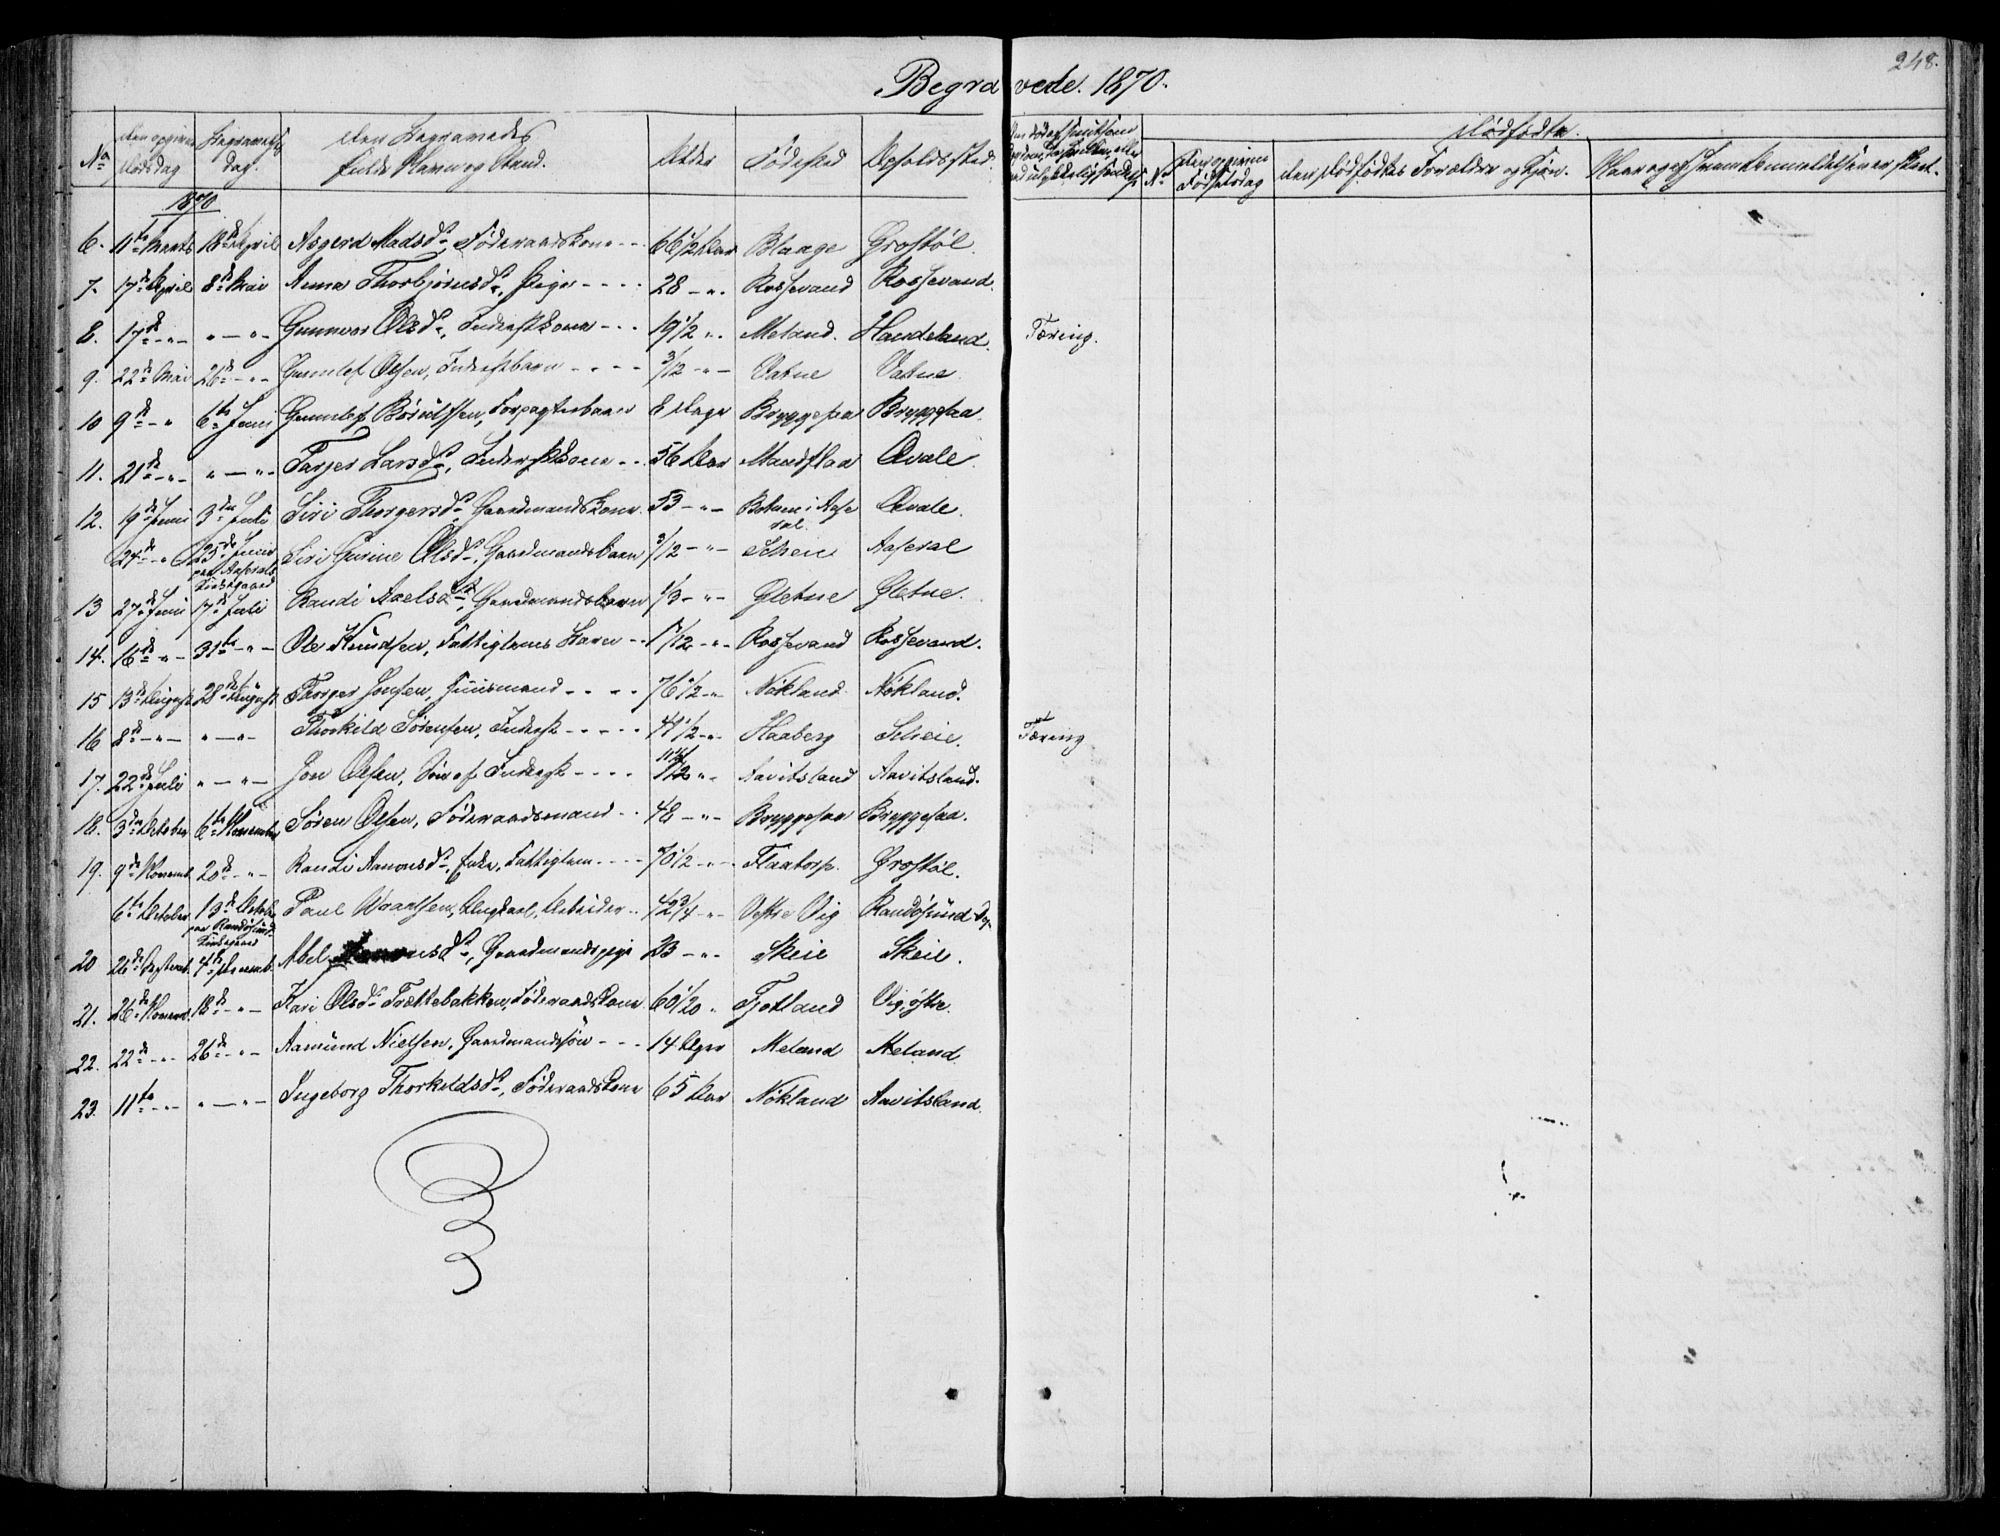 248.
Begravede. 1870.
No Den opgivne Dødsdag Begravelses dag. Den Begravedes fulde Navn og Stand. Alder Fødested Opholdssted.
Dødfødte.
No Den opgivne Fødselsdag Den Dødfødtes Forældre og Kjøn. Naar og af hvem Anmeldelsen er skeet.
1870
6. 11te Marts 18de April Asgerd Madsdr., Føderaadskone 66 1/2 Aar Blaage Grostøl.
7. 17de April 8de Mai Anna Thorbjørnsdr., Pige 28 - " - Rossevand Rossevand.
8. 17de - " - " - " - Gunnvor Olsdr., Inderstkone 19 1/2 " - Meland. Handeland. Tæring.
9. 22de Mai 26de - " - Gunnlef Olsen, Inderstbarn 3/12 - " - Vatne Vatne.
10 9de - " 6te Juni Gunnlef Børuldsen, Forpagterbarn 8 Dage Bryggesaa Bryggesaa.
11. 21de - " - " - " - Tarjer Larsdr., Inderstkone 56 Aar Mandflaa Qvale.
12. 19de Juni 3die Juli Siri Thorgersdr., Gaardmandskone 53 - " - Botnen i Aaseral. Qvale.
24de - " 25de Juni paa Aaserals Kirkegaard Siri Gurine Olsdr., Gaardmandsbarn 3/12 - " - Scheie Aaseral
13 27de Juni 17de Juli Randi Axelsdr., Gaardmandsbarn 1/3 - " - Gletne Gletne.
14. 16de - " - 31te - " - Ole Knudsen, Fattiglems Barn 1 7/12 - " - Rossevand Rossevand.
15 13de August 28de August Thorger Jonsen, Huusmand 76 1/2 - " Nøkland Nøkland.
16 8de - " - " - " - Thorkild Sørensen, Inderst 41 1/2 - " - Haaberg Scheie. Tæring
17. 22de Juli " - " - Jon Olsen, Søn af Inderst 11/12 " - Aavitsland Aavitsland.
18. 3die October 6te November Søren Olsen, Føderaadsmand 48 - " - Bryggesaa Bryggesaa.
19. 9de Novemb. 20de - " - Randi Aanonsdr., Enke, Fattiglem 70 1/2 - " - Flaatorp. Grostøl.
6te October 13de October paa Randøsund Kirkegaard Paul Wraalsen, Ungkarl, Arbeider 42 3/4 - " Vestre Vig Randøsund
20 26de Septemb. 4de Decemb. Abel Aanonsdr., Gaardmandspige 23 - " - Skeie Skeie.
21. 26de Novemb. 18de - " - Kari Olsdr. Trættebakken, Føderaadskone 60 1/20 " Fjotland Vig østre.
22. 22de - " - 26de - " - Aamund Nielsen, Gaardmandssøn 14 Uger Meland Meland
23. 11te - " - " - " - Ingeborg Thorkildsdr., Føderaadskone 65 Aar Nøkland Aavitsland.